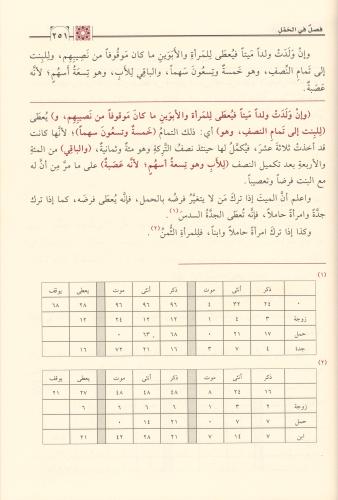 فصلٌ في الحَمْل
٢٥١
وإنْ وَلَدَتْ ولداً مَيتاً فيُعطَى للمَرأةِ والأَبوَينِ ما كان مَوقُوفاً من نَصيبِهِم، وللبِنتِ
إلى تَمامِ النِّصفِ، وهو خَمسةٌ وتِسعُونَ سَهماً، والباقِي للأبِ، وهو تِسعَةُ أَسهُمٍ؛ لأنَّه
عَصَبةٌ.
(وإنْ وَلَدَتْ ولداً مَيتاً فيُعطَى للمَرأةِ والأَبوَينِ ما كان مَوقُوفاً من نَصيبِهِم، و) يُعطَى
(للبِنتِ إلى تَمامِ النصفِ، وهو) أي: ذلك التمامُ (خَمسةٌ وتسعُونَ سَهماً)؛ لأنَّها كانت
قد أخذتْ ثلاثةَ عشرَ، فيكمَّلُ لها حينئذ نصفُ التَّرِكةِ وهو مئةٌ وثمانيةٌ، (والباقِي) من المئةِ
والأربعةِ بعد تكميلِ النصفِ (للأبِ وهو تِسعةُ أَسهُمٍ؛ لأنَّه عَصَبةٌ) على ما مرَّ مِن أنَّ له
مع البنت فرضاً وتعصيباً.
واعلم أنَّ الميتَ إذا تركَ مَن لا يتغيَّرُ فرضُه بالحمل، فإنَّه يُعطَى فرضَه، كما إذا تركَ
جدَّةً وامرأةً حاملاً، فإنَّه تُعطَى الجدَّةُ السدسَ(١).
وكذا إذا تركَ امرأةً حاملاً وابناً، فلِلمَرأةِ الثُّمنُ(٢).
(١)
ذكر أنثى موت ذكر أنثى موت يعطى يوقف
٠ ٢٤ ٣٢ ٤ ٩٦ ٩٦ ٩٦ ٢٨ ٦٨
زوجة ٣ ٤ ١ ١٢ ١٢ ٢٤ ١٢
حمل ١٧ ٢١ ٠ ٦٨ ٦٣ ٠
جدة ٤ ٧ ٣ ١٦ ٢١ ٧٢ ١٦
(٢)
ذكر أنثى موت ذكر أنثى موت يعطى يوقف
١٦ ٢٤ ٨ ٤٨ ٤٨ ٤٨ ٢٧ ٢١
زوجة ٢ ٣ ١ ٦ ٦ ٦ ٦
حمل ٧ ٧ ٠ ٢١ ١٤ ٠
ابن ٧ ١٤ ٧ ٢١ ٢٨ ٤٢ ٢١